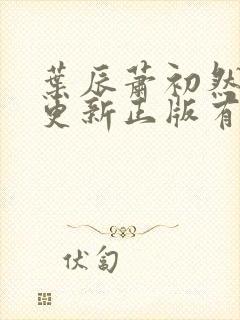 葉辰蕭初然
更新正版有
伏匐